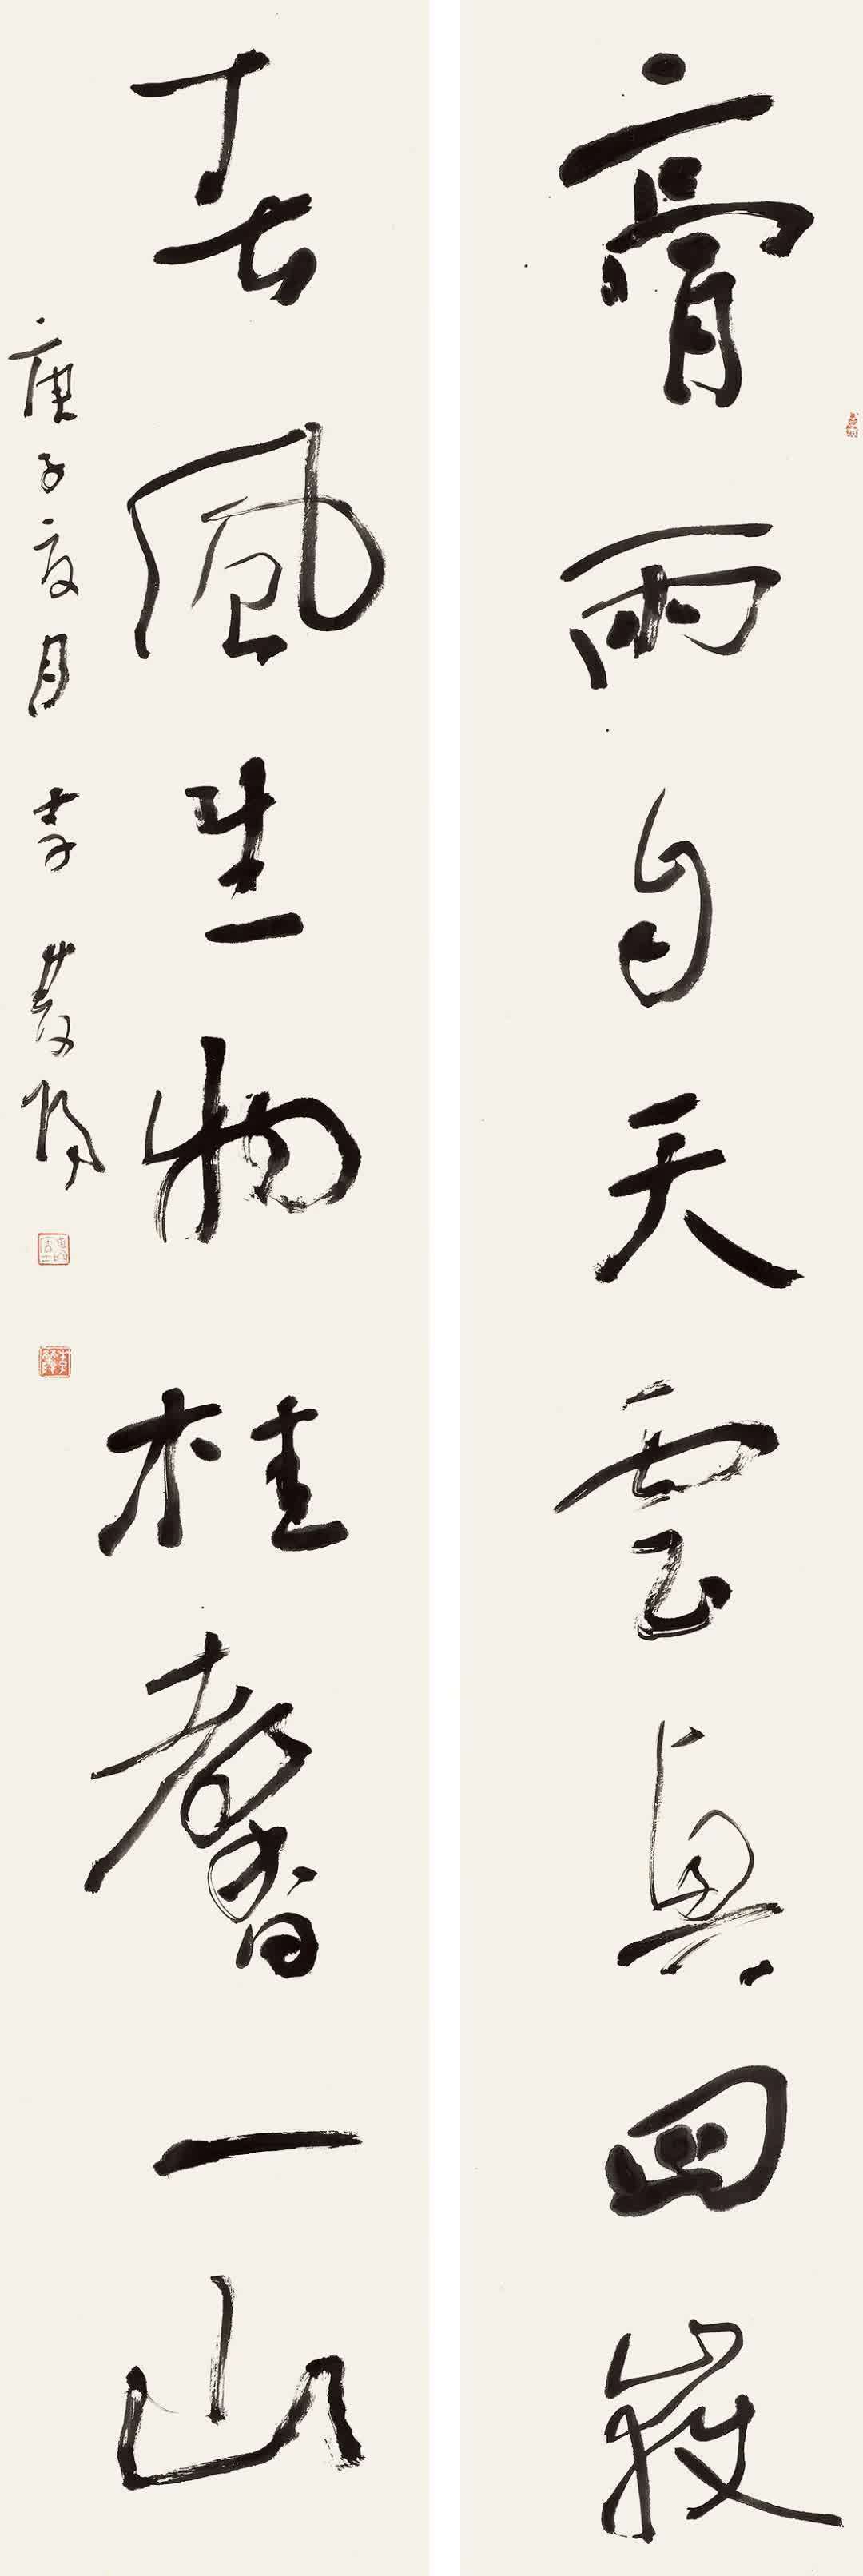 膏雨自天雲興四嶽
春風生物桂馨一山
庚子夏月 李